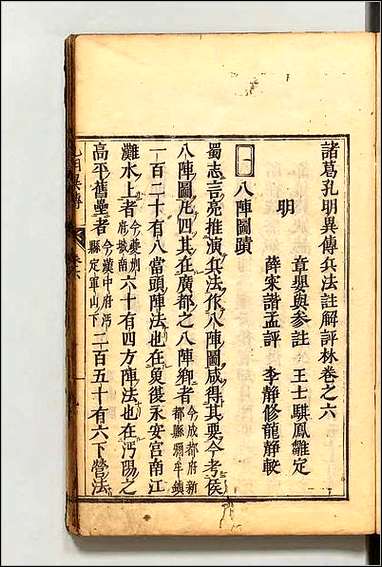 諸葛孔明異傳兵法註解評林卷之六
明
章嬰與參註 王士騏鳳雛定
薛寀諧孟評 李靜修龍靜較
一 八陣圖蹟
蜀志言亮推演兵法作八陣圖咸得其要今考侯
八陣圖凡四其在廣都之八陣鄉者今成都府新都縣彌牟鎮
一百二十有八當頭陣法也在魚復永安宮南江
灘水上者今夔州府城南六十有四方陣法也在沔陽之
高平舊壘者今漢中府沔縣定軍山下二百五十有六下營法